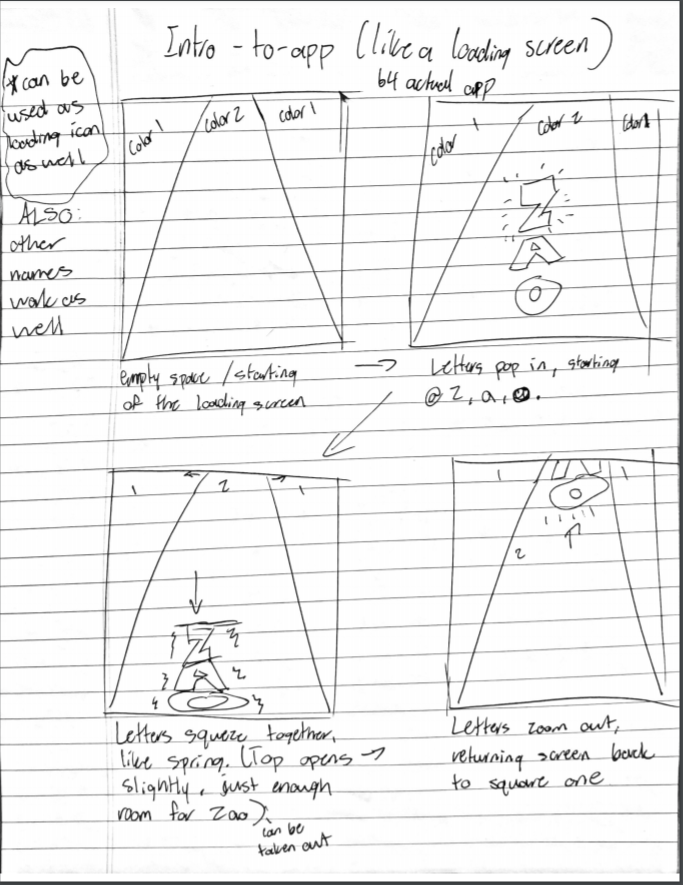 Intro-to-app (like a loading screen)
b4 actual app
*can be
used as
loading icon
as well
ALSO:
other
names
work as
well
Color 1
Color 2
Color 1
Color 1
Color 2
Color 1
Z
A
O
empty space / starting
of the loading screen
Letters pop in, starting
@ Z, a, o.
1
2
1
Z
A
O
1
1
2
O
Letters squeeze together,
like spring. (Top opens
slightly, just enough
room for Zao)
can be
taken out
Letters zoom out,
returning screen back
to square one